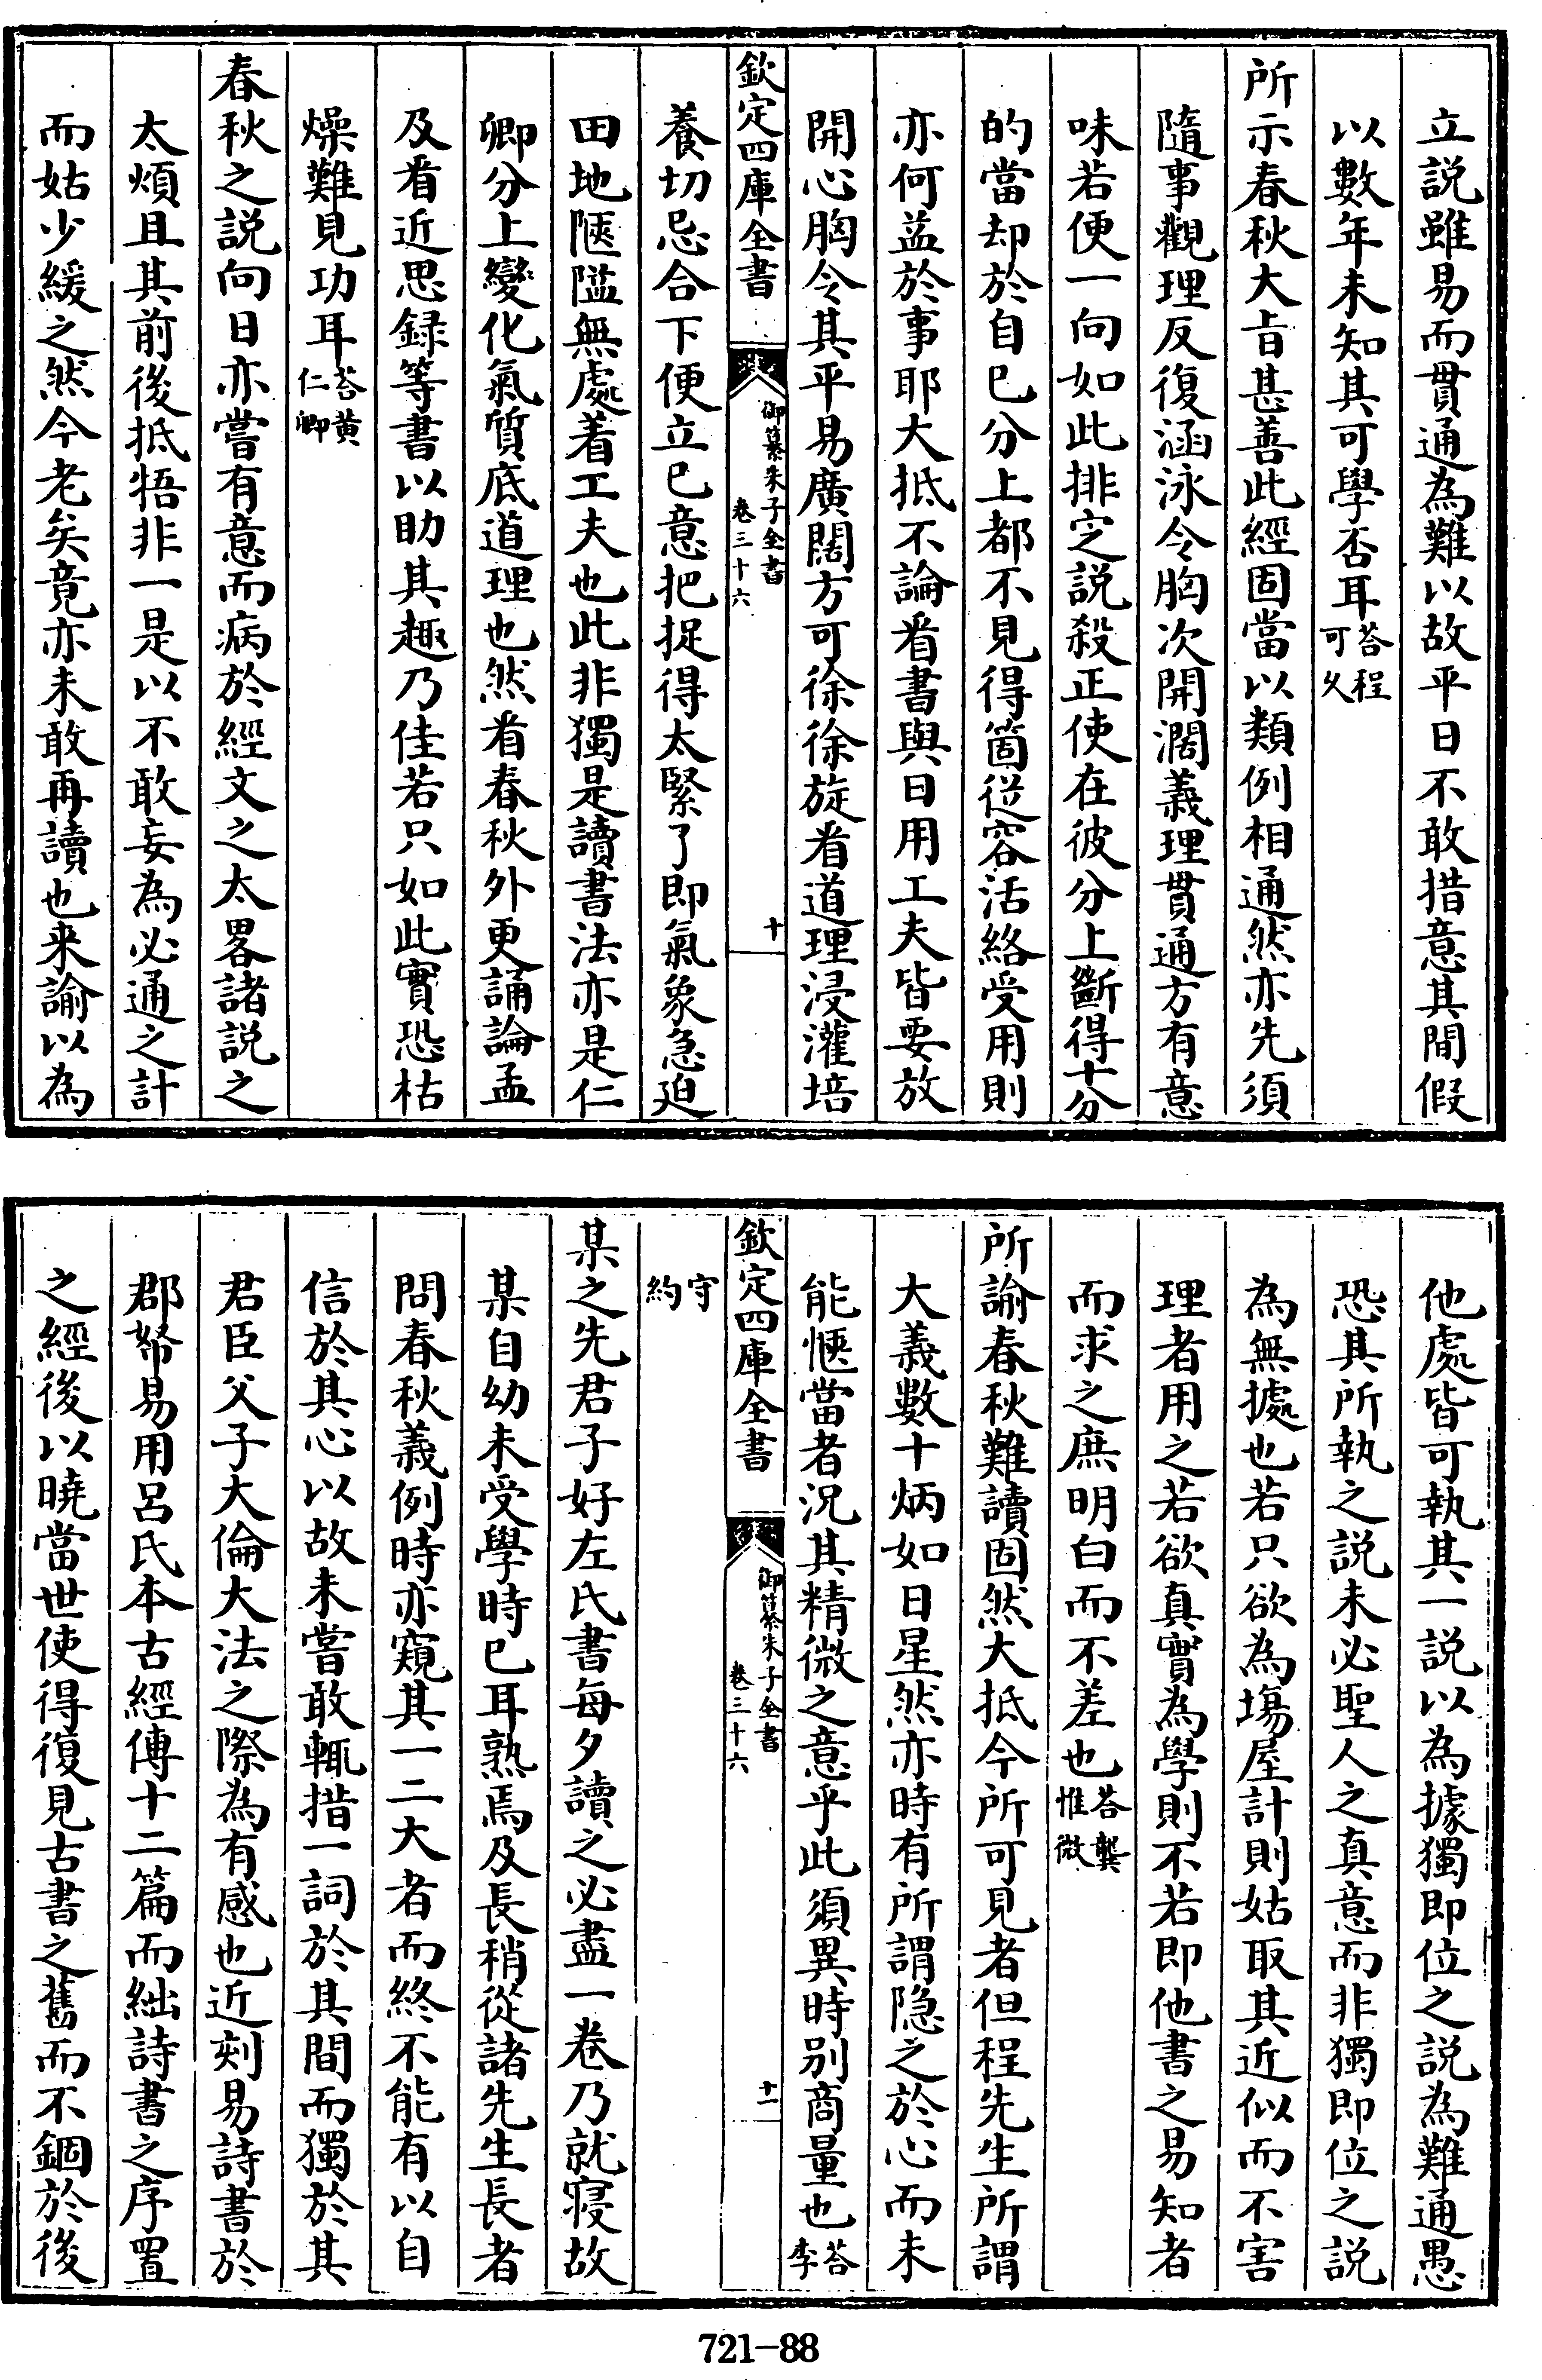 立説雖易而貫通為難以故平日不敢措意其間假
以數年未知其可學否耳答程可久
所示春秋大旨甚善此經固當以類例相通然亦先須
隨事觀理反復涵泳令胸次開濶義理貫通方有意
味若便一向如此排定説殺正使在彼分上斷得十分
的當却於自己分上都不見得箇從容活絡受用則
亦何益於事耶大抵不論看書與日用工夫皆要放
開心胸令其平易廣闊方可徐徐旋看道理浸灌培
欽定四庫全書
御纂朱子全書
卷三十六
十
養切忌合下便立已意把捉得太緊了即氣象急迫
田地陿隘無處着工夫也此非獨是讀書法亦是仁
卿分上變化氣質底道理也然看春秋外更誦論孟
及看近思録等書以助其趣乃佳若只如此實恐枯
燥難見功耳答黄仁卿
春秋之説向日亦嘗有意而病於經文之太畧諸説之
太煩且其前後抵牾非一是以不敢妄為必通之計
而姑少緩之然今老矣竟亦未敢再讀也来諭以為
他處皆可執其一説以為據獨即位之説為難通愚
恐其所執之説未必聖人之真意而非獨即位之説
為無據也若只欲為塲屋計則姑取其近似而不害
理者用之若欲真實為學則不若即他書之易知者
而求之庶明白而不差也答龔惟微
所諭春秋難讀固然大抵今所可見者但程先生所謂
大義數十炳如日星然亦時有所謂隐之於心而未
能愜當者況其精微之意乎此須異時别商量也答李
欽定四庫全書
御纂朱子全書
卷三十六
十一
守約
某之先君子好左氏書每夕讀之必盡一卷乃就寢故
某自幼未受學時已耳熟焉及長稍從諸先生長者
問春秋義例時亦窺其一二大者而終不能有以自
信於其心以故未嘗敢輒措一詞於其間而獨於其
君臣父子大倫大法之際為有感也近刻易詩書於
郡帑易用呂氏本古經傳十二篇而絀詩書之序置
之經後以曉當世使得復見古書之舊而不錮於後
721-88